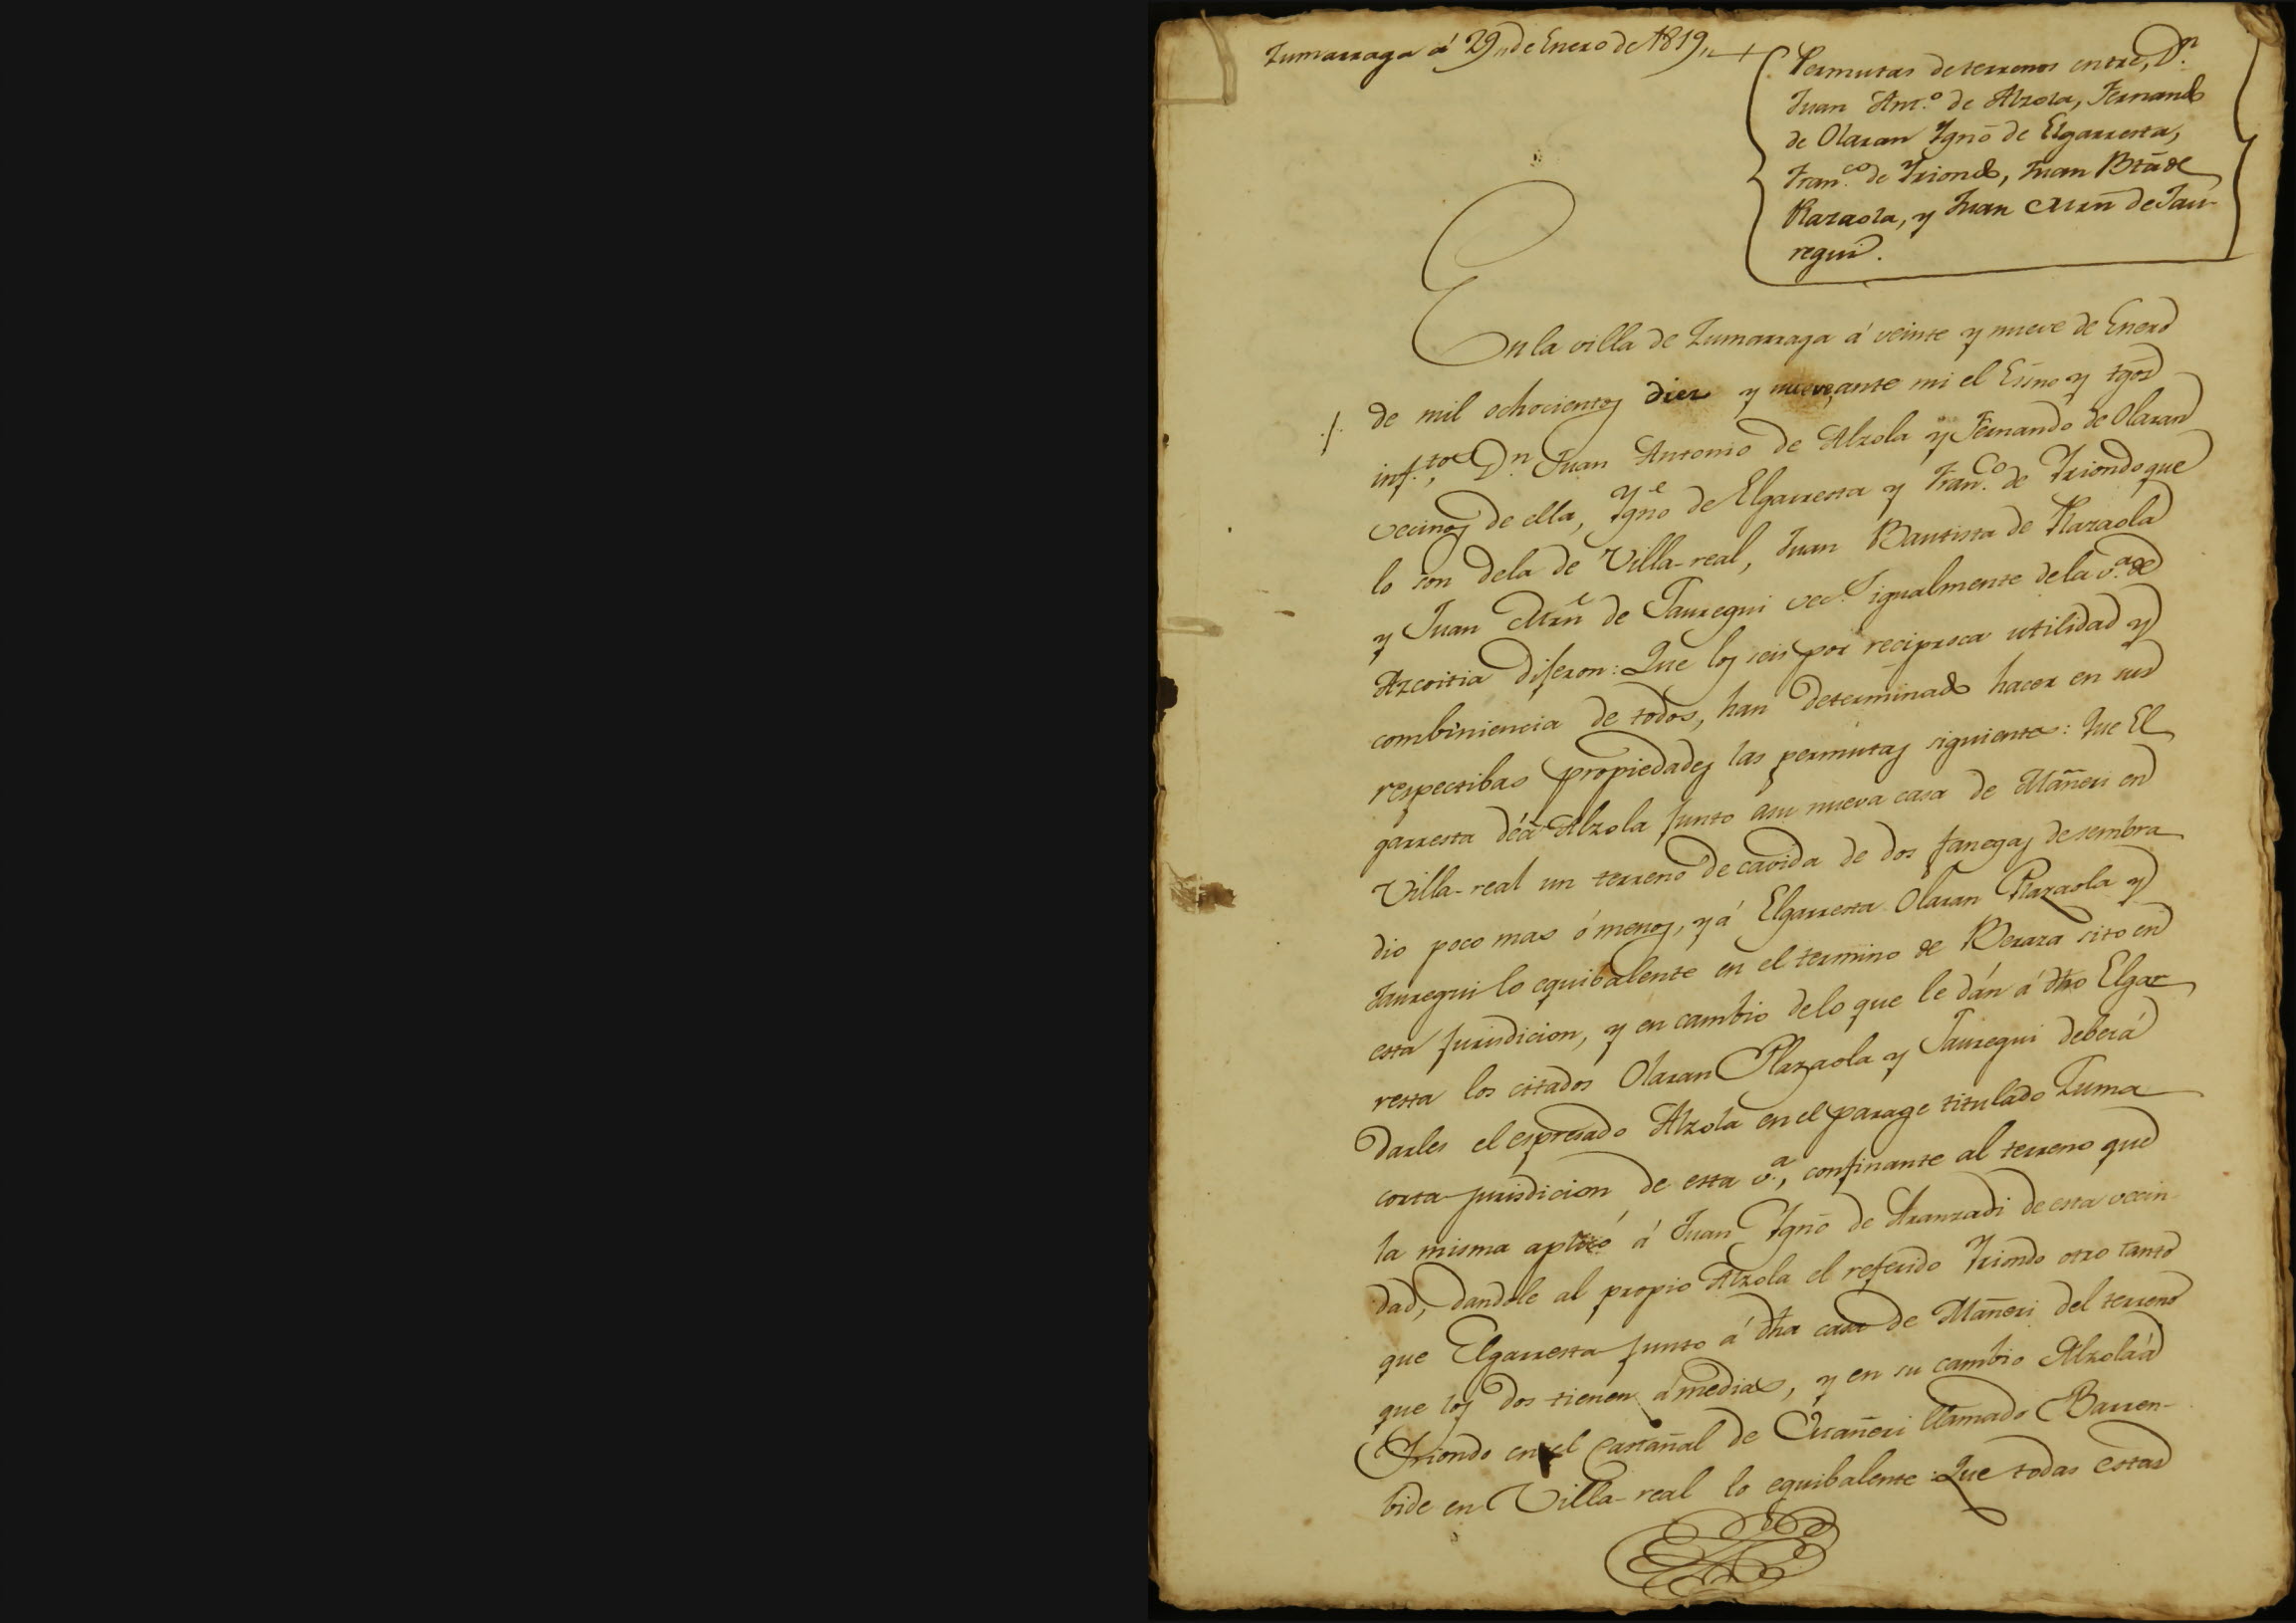 Zumarraga á 29,, de Enero de 1819,,
Permutas de terrenos entre, Dⁿ.
Juan Ant.º de Alzola, Fernando
de Olaran Ygnº de Elgarresta,
Fran.co de Yriondo, Juan Bta de
Plazaola, y Juan Mrn de Jau-
regui.
En la villa de Zumarraga á veinte y nueve de Enero
de mil ochocientos diez y nueve, ante mi el Essno y tgos
inf.tos Dⁿ. Juan Antonio de Alzola y Fernando de Olaran
vecinos de ella, Ygnº de Elgarresta y Fran.co de Yriondo que
lo son dela de Villa-real, Juan Bautista de Plazaola
y Juan Mrn de Jauregui vec.s igualmente de la v.ª de
Azcoitia dijeron: Que los seis por reciproca utilidad y
combiniencia de todos, han determinado hacer en sus
respectibas propiedades las permutas siguientes: Que El
garresta dé á Alzola junto asu nueva casa de Mañeri en
Villa-real un terreno de cavida de dos fanegas de sembra
dio poco mas ó menos, y á Elgarresta Olaran Plazaola y
Jauregui lo equibalente en el termino de Beraza sito en
esta jurisdicion, y en cambio delo que le dán á dho Elgar
resta los citados Olaran Plazaola y Jauregui deberá
darles el espresado Alzola en el parage titulado Zuma
corta jurisdicion de esta v.ª, confinante al terreno que
la misma aplicó á Juan Ygnº de Aranzadi de esta vecin
dad, dandole al propio Alzola el referido Yriondo otro tanto
que Elgarresta junto á dha casa de Mañeri del terreno
que los dos tienen á medias, y en su cambio Alzola á
Yriondo en el castañal de Mañeri llamado Barren-
bide en Villa-real lo equibalente: Que todas estas